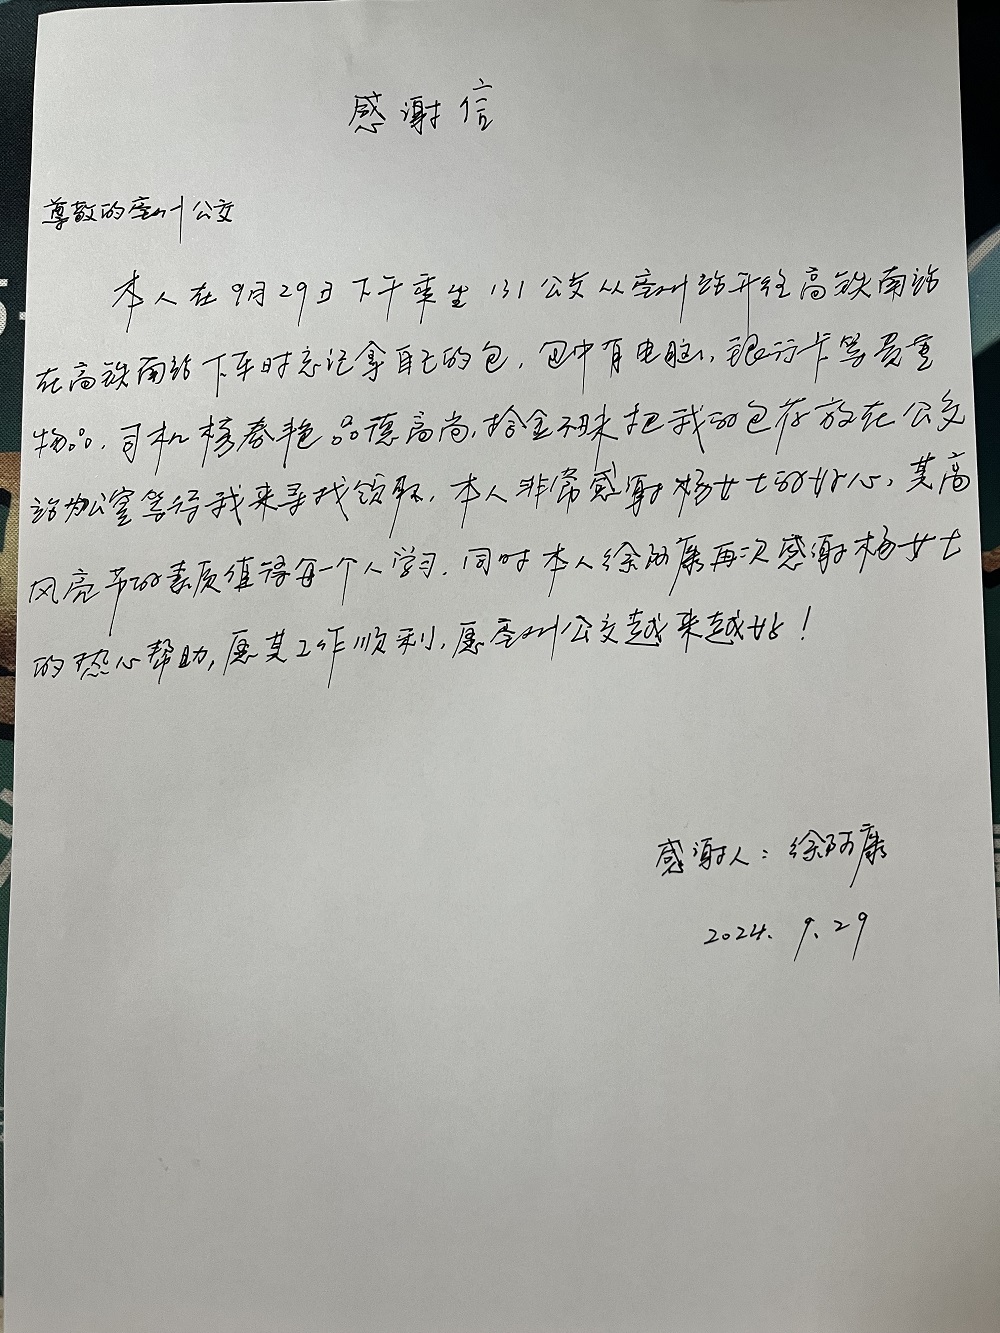 感谢信
尊敬的亳州公交
本人在9月29日下午乘坐131公交从亳州站开往高铁南站
在高铁南站下车时忘记拿自己的包，包中有电脑，银行卡等贵重
物品，司机杨春艳品德高尚，拾金不昧把我的包存放在公交
站办公室等待我来寻找领取，本人非常感谢杨女士的好心，其高
风亮节的素质值得每一个人学习，同时本人徐阿康再次感谢杨女士
的热心帮助，愿其工作顺利，愿亳州公交越来越好！
感谢人：徐阿康
2024.9.29